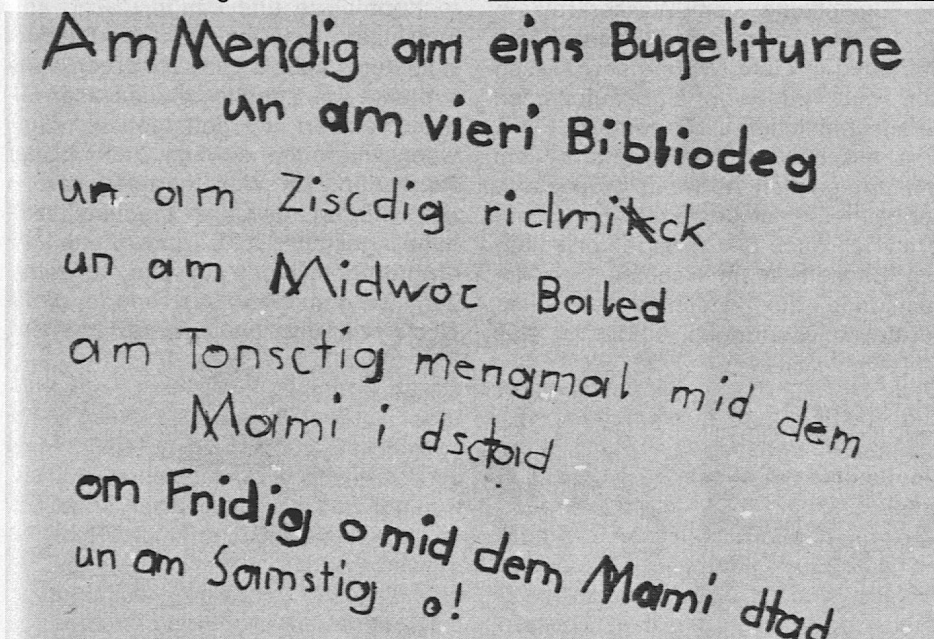 Am Mendig am eins Bugeliturne
un am vieri Bibliodeg
un am Ziscdig ridmick
un am Midwoc Baled
am Tonsctig mengmal mid dem
Mami i dsctad
am Fridig o mid dem Mami dtad
un am Samstig o!